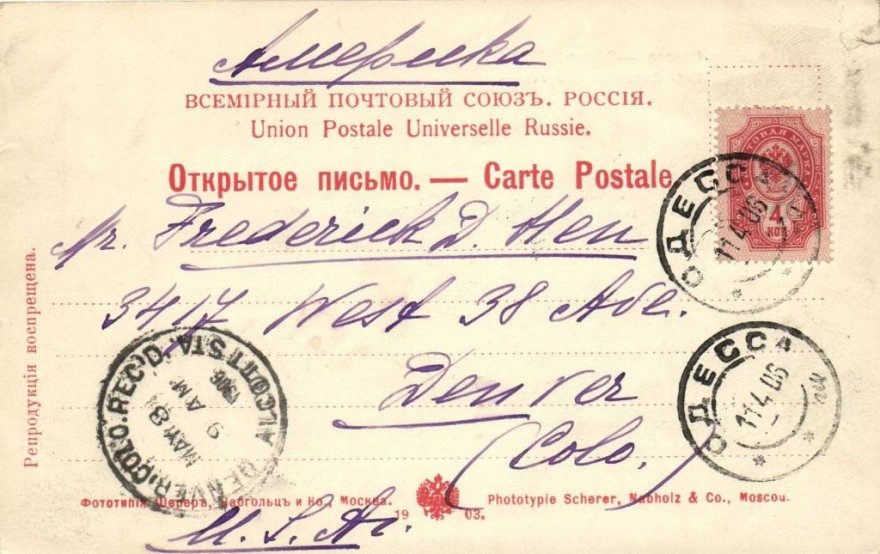 Америка
ВСЕМІРНЫЙ ПОЧТОВЫЙ СОЮЗЪ. РОССІЯ.
Union Postale Universelle Russie.
Открытое письмо. — Carte Postale
4
КОП
ОДЕССА
11 4 06
Mr. Frederick D. Hen
3417 West 38 Ave.
Denver
(Colo.)
ОДЕССА
11 4 06
DENVER, COLO. REC'D.
MAY 8
9 AM
1906
Репродукція воспрещена.
Фототипія Шереръ, Набгольцъ и Ко., Москва. 1903. Phototypie Scherer, Nabholz & Co., Moscou.
U.S.A.